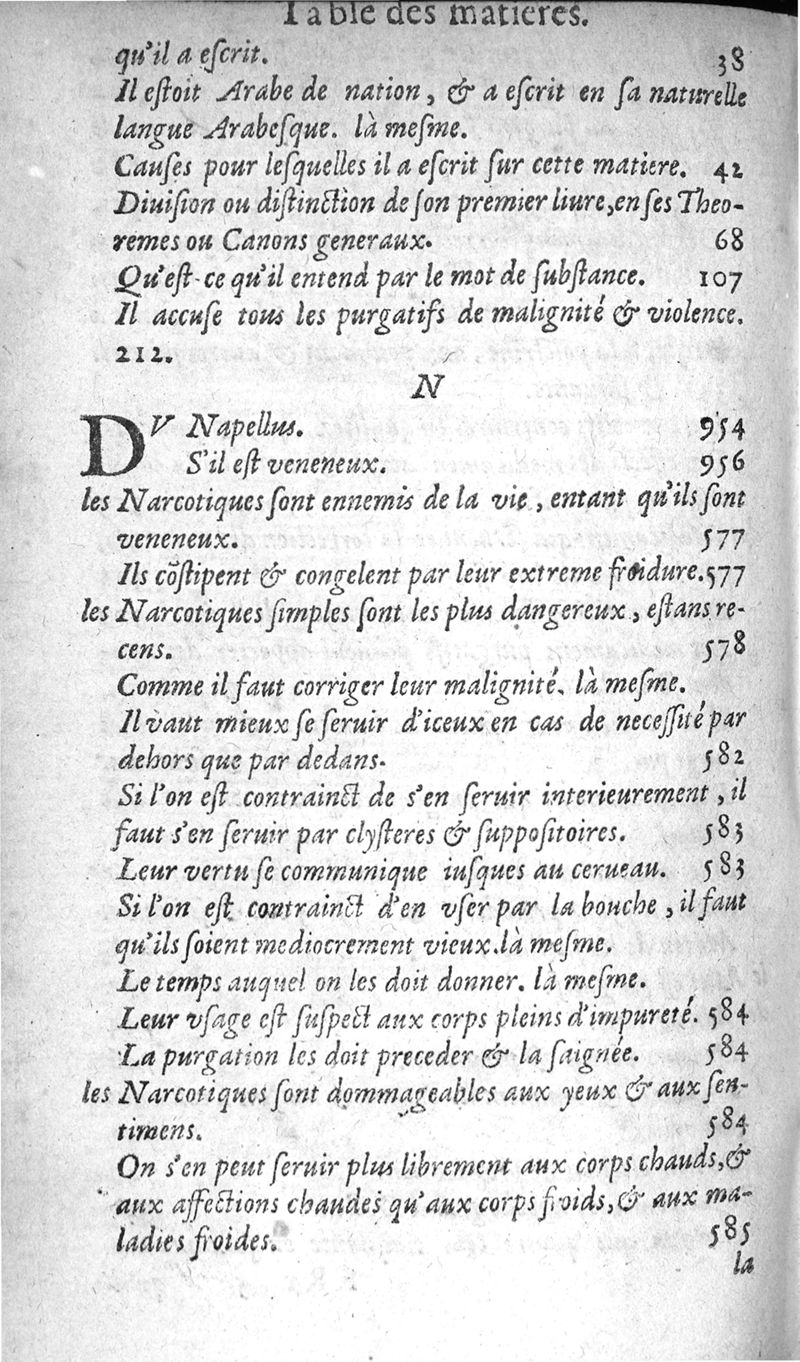 Table des matieres.
qu'il a eſcrit. 38
Il eſtoit Arabe de nation, & a eſcrit en ſa naturelle
langue Arabeſque. là meſme.
Cauſes pour leſquelles il a eſcrit ſur cette matiere. 42
Diuiſion ou diſtinction de ſon premier liure, en ſes Theo-
remes ou Canons generaux. 68
Qu'eſt-ce qu'il entend par le mot de ſubſtance. 107
Il accuſe tous les purgatifs de malignité & violence.
212.
N
DV Napellus. 954
S'il eſt veneneux. 956
les Narcotiques ſont ennemis de la vie, entant qu'ils ſont
veneneux. 577
Ils cõſtipent & congelent par leur extreme froidure. 577
les Narcotiques ſimples ſont les plus dangereux, eſtans re-
cens. 578
Comme il faut corriger leur malignité. là meſme.
Il vaut mieux ſe ſeruir d'iceux en cas de neceſſité par
dehors que par dedans. 582
Si l'on eſt contrainct de s'en ſeruir interieurement, il
faut s'en ſeruir par clyſteres & ſuppoſitoires. 583
Leur vertu ſe communique iuſques au cerueau. 583
Si l'on eſt contrainct d'en vſer par la bouche, il faut
qu'ils ſoient mediocrement vieux. là meſme.
Le temps auquel on les doit donner. là meſme.
Leur vſage eſt ſuſpect aux corps pleins d'impureté. 584
La purgation les doit preceder & la ſaignée. 584
les Narcotiques ſont dommageables aux yeux & aux ſen-
timens. 584
On s'en peut ſeruir plus librement aux corps chauds, &
aux affections chaudes qu'aux corps froids, & aux ma-
ladies froides. 585
la